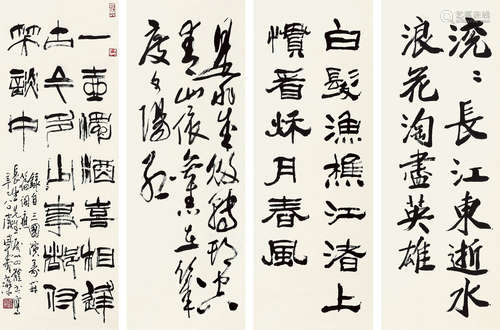 滾〻長江東逝水
浪花淘盡英雄
白髮漁樵江渚上
慣看秋月春風
是非成敗轉頭空
青山依舊在幾
度夕陽紅
一壺濁酒喜相逢
古今多少事都付
笑談中
錄自三國演義